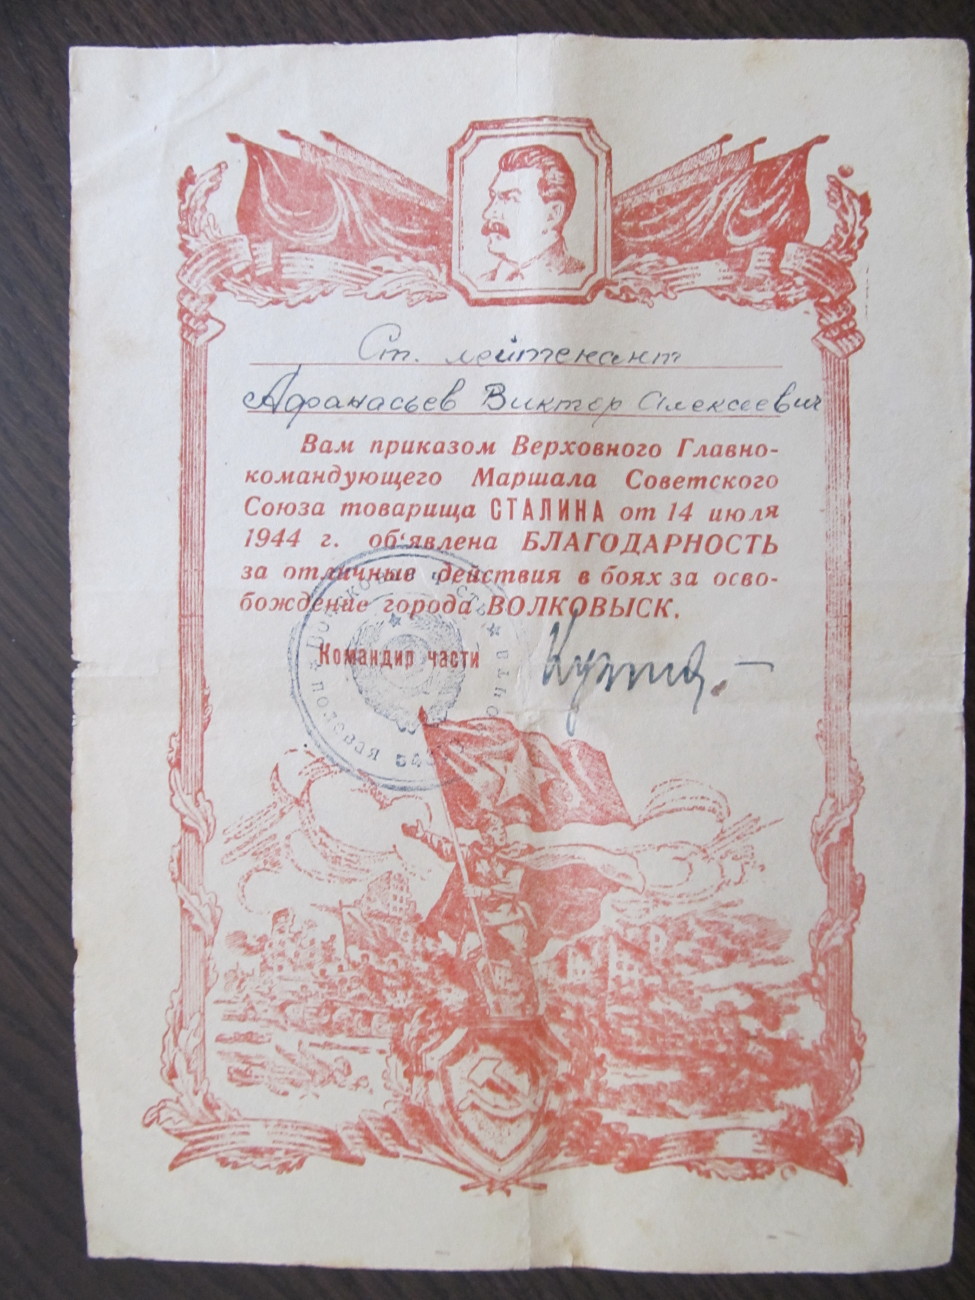 Ст. лейтенант
Афанасьев Виктор Алексеевич
Вам приказом Верховного Главно-
командующего Маршала Советского
Союза товарища СТАЛИНА от 14 июля
1944 г. об'явлена БЛАГОДАРНОСТЬ
за отличные действия в боях за осво-
бождение города ВОЛКОВЫСК.
Командир части
Войсковая часть
полевая почта